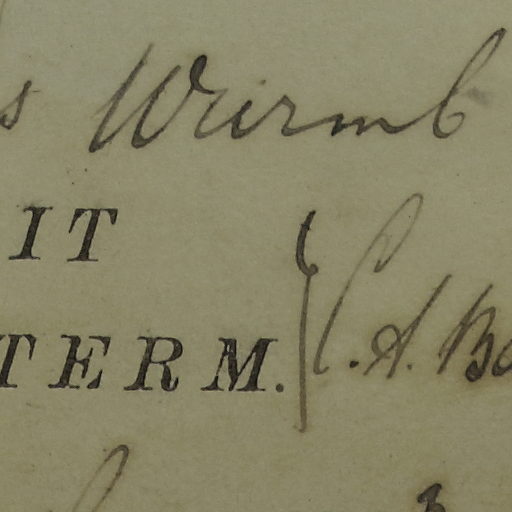 s Wurmb
IT
TERM.
C. A. Bo